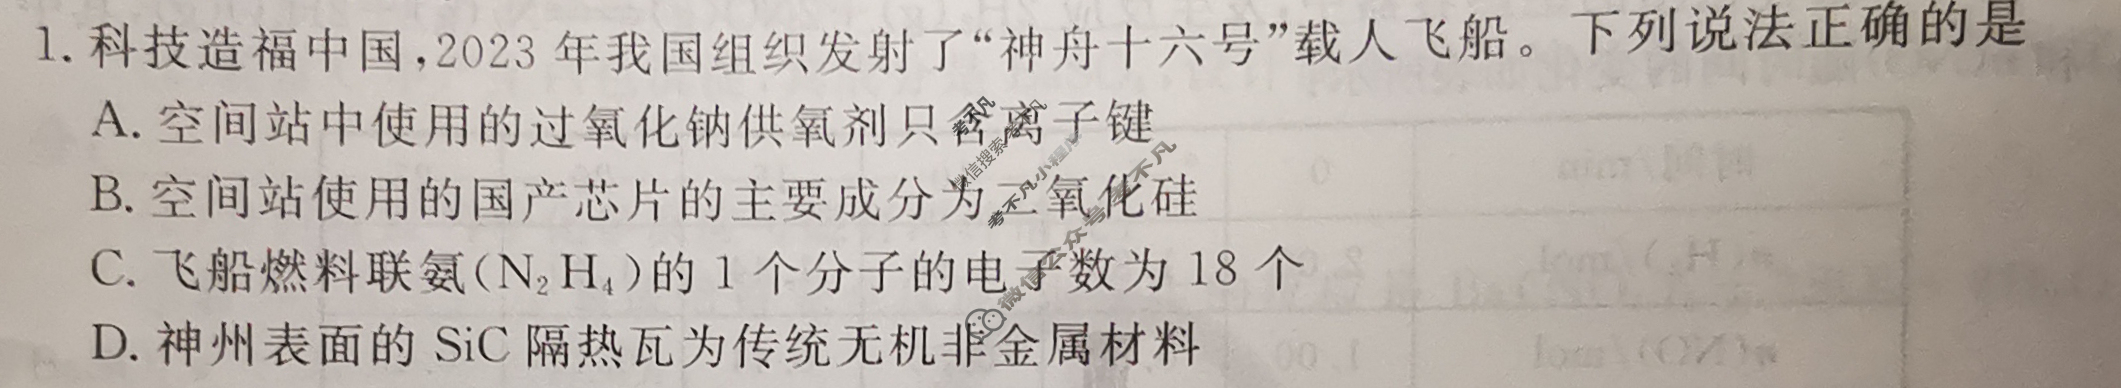 1. 科技造福中国,2023年我国组织发射了“神舟十六号”载人飞船。下列说法正确的是
A. 空间站中使用的过氧化钠供氧剂只含离子键
B. 空间站使用的国产芯片的主要成分为二氧化硅
C. 飞船燃料联氨(N₂H₄)的1个分子的电子数为18个
D. 神州表面的SiC隔热瓦为传统无机非金属材料